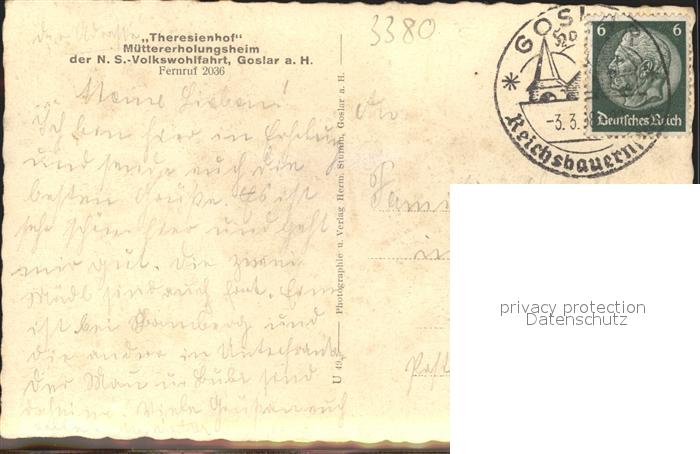 3380
„Theresienhof"
Müttererholungsheim
der N. S.-Volkswohlfahrt, Goslar a. H.
Fernruf 2036
GOSLAR
-3.3.3
Reichsbauern
6 6
Deutsches Reich
Meine Lieben!
Ich bin hier in Erholung
und sende euch die
besten Grüße. Es ist
sehr schön hier und geht
mir gut. Die zwei
Mädl sind auch fort.
ist bei Bamberg und
die andere in Unterfranken
Der Mann u. Bub sind
daheim. Viele Grüße an euch
An
in
Post
Photographie u. Verlag Herm. Stumm, Goslar a. H.
U 49
privacy protection
Datenschutz